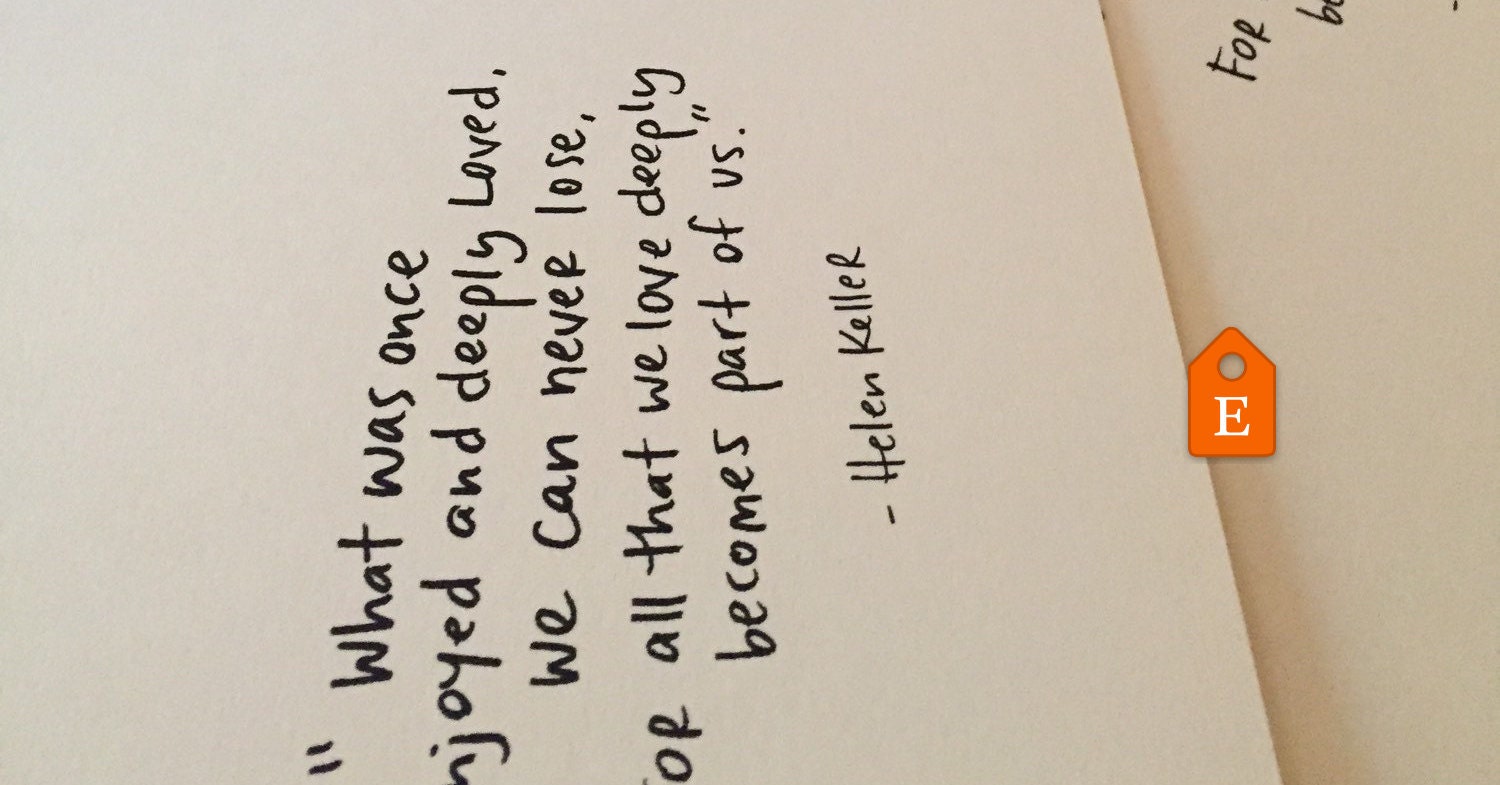 " What was once
njoyed and deeply Loved,
We can never lose,
OR all that we love deeply
becomes part of us."
- Helen Keller
FOR
be
-
E